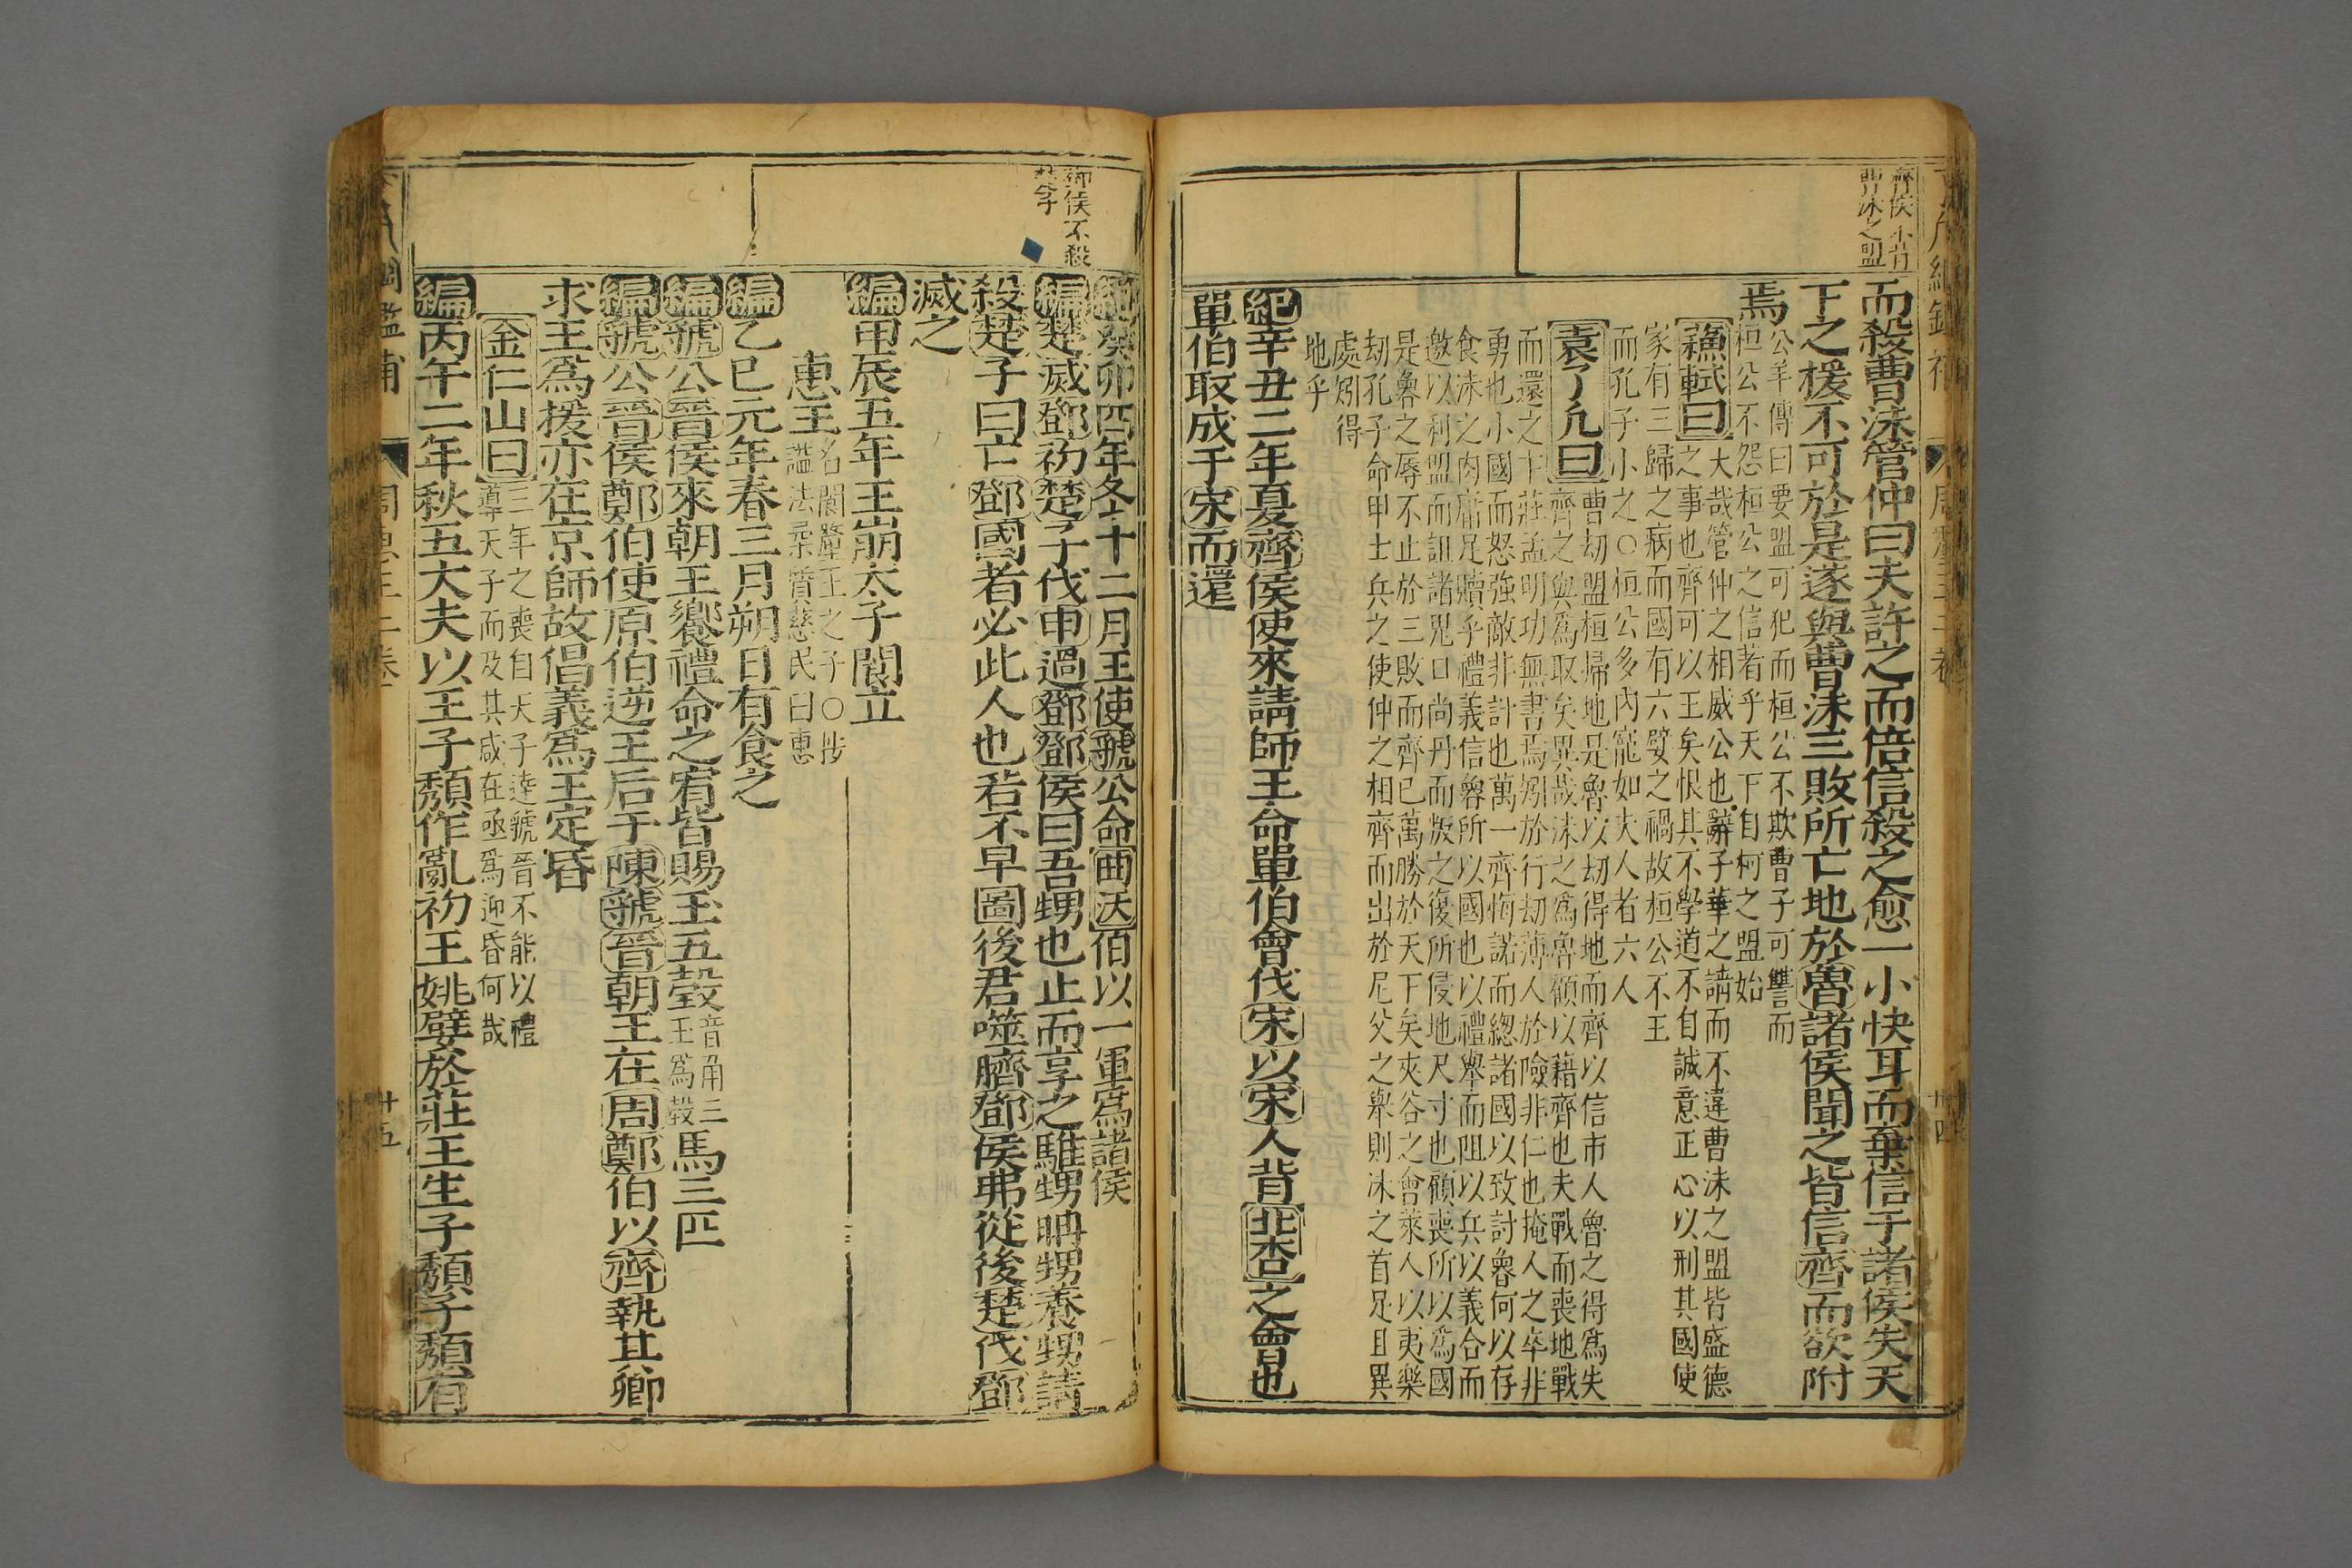 齊侯不背
曹沬之盟
而殺曹沬管仲曰夫許之而倍信殺之愈一小快耳而棄信于諸侯失天
下之援不可於是遂與曹沬三敗所亡地於魯諸侯聞之皆信齊而欲附
焉
公羊傳曰要盟可犯而桓公不欺曹子可讐而
桓公不怨桓公之信著乎天下自柯之盟始
蘇軾曰
大哉管仲之相威公也辭子華之請而不違曹沬之盟皆盛德
之事也齊可以王矣恨其不學道不自誠意正心以刑其國使
家有三歸之病而國有六嬖之禍故桓公不王
而孔子小之○桓公多內寵如夫人者六人
袁了凡曰
曹劫盟桓歸地是魯以劫得地而齊以信市人魯之得為失
齊之與為取矣異哉沬之為魯顧以藉齊也夫戰而喪地戰
而還之卞莊孟明功無書焉矧於行劫薄人於險非仁也掩人之卒非
勇也小國而怒強敵非計也萬一齊悔諾而緫諸國以致討魯何以存
食沬之肉庸足贖乎禮義信魯所以國也以禮舉而阻以兵以義合而
邀以利盟而詛諸鬼口尚丹而叛之復所侵地尺寸也顧喪所以為國
是魯之辱不止於三敗而齊已萬勝於天下矣夾谷之會萊人以夷樂
劫孔子命甲士兵之使仲之相齊而出於尼父之舉則沬之首足且異
處矧得
地乎
紀辛丑二年夏齊侯使來請師王命單伯會伐宋以宋人背北杏之會也
單伯取成于宋而還
廿四
鄧侯不殺
楚子
紀癸卯四年冬十二月王使虢公命曲沃伯以一軍為諸侯
編楚滅鄧初楚子伐申過鄧鄧侯曰吾甥也止而享之騅甥聃甥養甥請
殺楚子曰亡鄧國者必此人也若不早圖後君噬臍鄧侯弗從後楚伐鄧
滅之
編甲辰五年王崩太子閬立
惠王
名閬釐王之子○
謚法柔質慈民曰惠
編乙巳元年春三月朔日有食之
編虢公晉侯來朝王饗禮命之宥皆賜玉五瑴
音角二
玉為瑴
馬三匹
編虢公晉侯鄭伯使原伯逆王后于陳虢晉朝王在周鄭伯以齊執其卿
求王為援亦在京師故倡義為王定昏
金仁山曰
三年之喪自天子達虢晉不能以禮
導天子而及其咸在亟為迎昏何哉
編丙午二年秋五大夫以王子頹作亂初王姚嬖於莊王生子頹子頹有
周惠王二卷
廿五